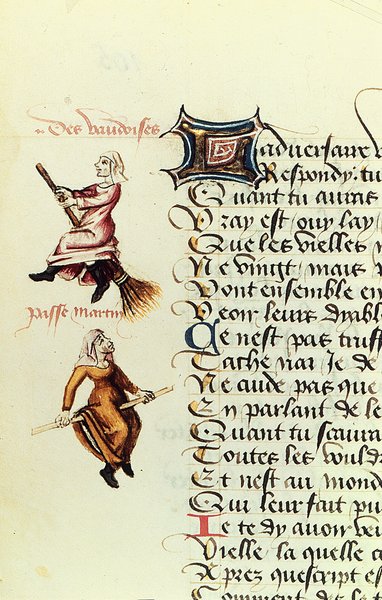 Des vaudoises
passe martin
Ladversaire
Respondy tu
Quant tu auras
Vray est ouy lay
Que les vielles
Ne vingt mais
Vont ensemble en
Veoir leurs dyabl
Ce nest pas truff
Sache nar Je de
Ne cuide pas que
En parlant de le
Quant tu scaura
Toutes les vould
Et nest au monde
Qui leur fait pu
Ie te dy auoir
Vielle la quelle
Aprez quescript est
Comment des le